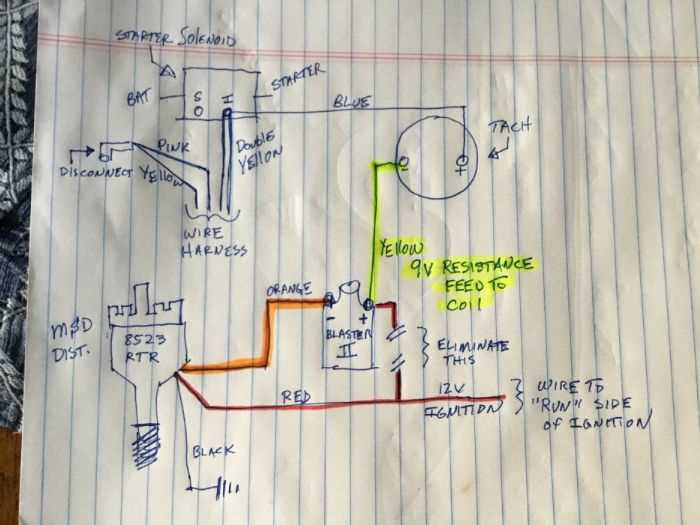 STARTER SOLENOID
BAT
S
I
STARTER
BLUE
TACH
-
+
PINK
DOUBLE
YELLOW
DISCONNECT
YELLOW
WIRE
HARNESS
YELLOW
9V RESISTANCE
FEED TO
COIL
ORANGE
MSD
DIST.
8523
RTR
- +
BLASTER
II
ELIMINATE
THIS
RED
12V
IGNITION
WIRE TO
"RUN" SIDE
of IGNITION
BLACK